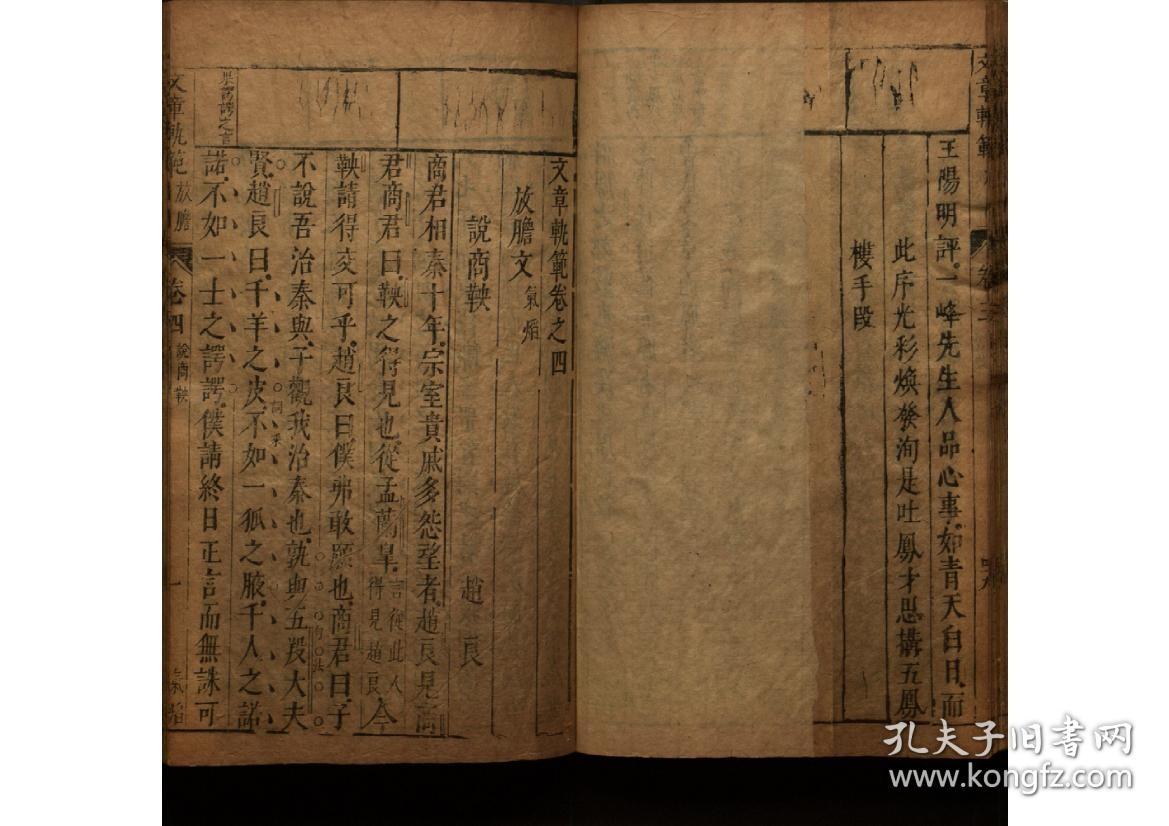 文章軌範
王陽明評一峰先生人品心事如青天白日而
此序光彩煥發洵是吐鳳才思搆五鳳
樓手段
文章軌範卷之四
放膽文 氣焰
說商鞅 趙良
商君相秦十年宗室貴戚多怨望者趙良見商
君商君曰鞅之得見也從孟蘭皐 言從此人得見趙良 今
鞅請得交可乎趙良曰僕弗敢願也商君曰子
不說吾治秦與子觀我治秦也孰與五羖大夫
賢趙良曰千羊之皮不如一狐之腋千人之諾
諾不如一士之諤諤僕請終日正言而無誅可
句法
詞采
文章軌範 放膽 卷四 說商鞅 一 氣焰
孔夫子旧书网
www.kongfz.com